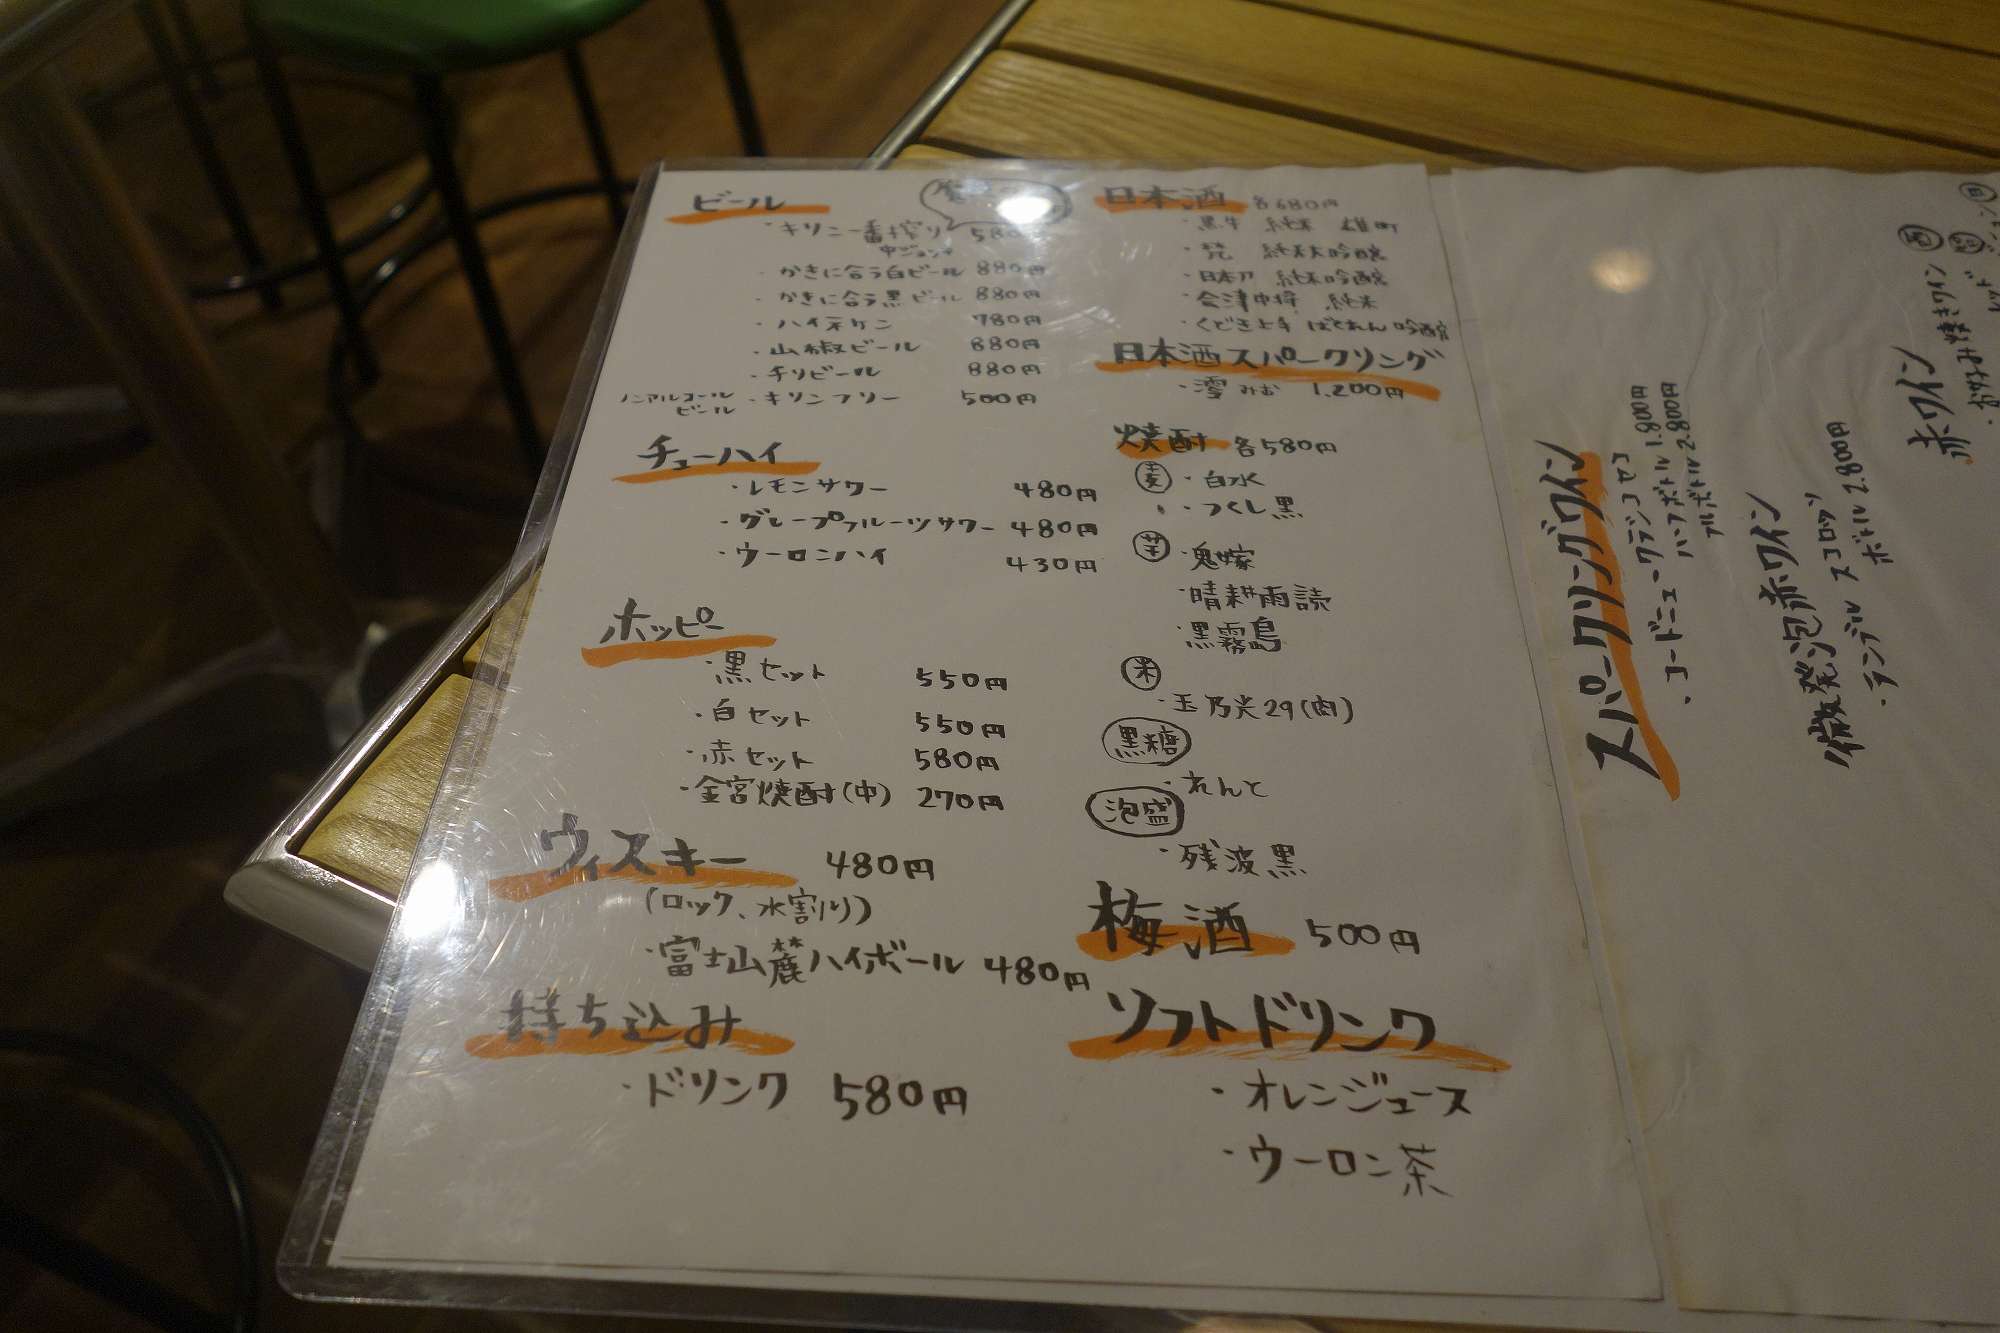 ビール
・キリン一番搾り 580
中ジョッキ
・かきに合う白ビール 880円
・かきに合う黒ビール 880円
・ハイネケン 780円
・山椒ビール 880円
・チリビール 880円
ノンアルコールビール ・キリンフリー 500円
チューハイ
・レモンサワー 480円
・グレープフルーツサワー 480円
・ウーロンハイ 430円
ホッピー
・黒セット 550円
・白セット 550円
・赤セット 580円
・金宮焼酎(中) 270円
ウィスキー 480円
(ロック、水割り)
・富士山麓ハイボール 480円
持ち込み
・ドリンク 580円
日本酒 各680円
・黒牛 純米 雄町
・梵 純米大吟醸
・日本刀 純米吟醸
・会津中将 純米
・くどき上手 ばくれん 吟醸
日本酒スパークリング
・澪 みお 1.200円
焼酎 各580円
麦 ・白水
・つくし黒
芋 ・鬼嫁
・晴耕雨読
・黒霧島
米
・玉乃光29(肉)
黒糖
・れんと
泡盛
・残波黒
梅酒 500円
ソフトドリンク
・オレンジュース
・ウーロン茶
スパークリングワイン
・コードニュークラシコセコ
ハーフボトル 1.800円
フルボトル 2.800円
微発泡赤ワイン
・ランブル スコロッソ
ボトル 2.800円
赤ワイン
・お好み焼きワイン